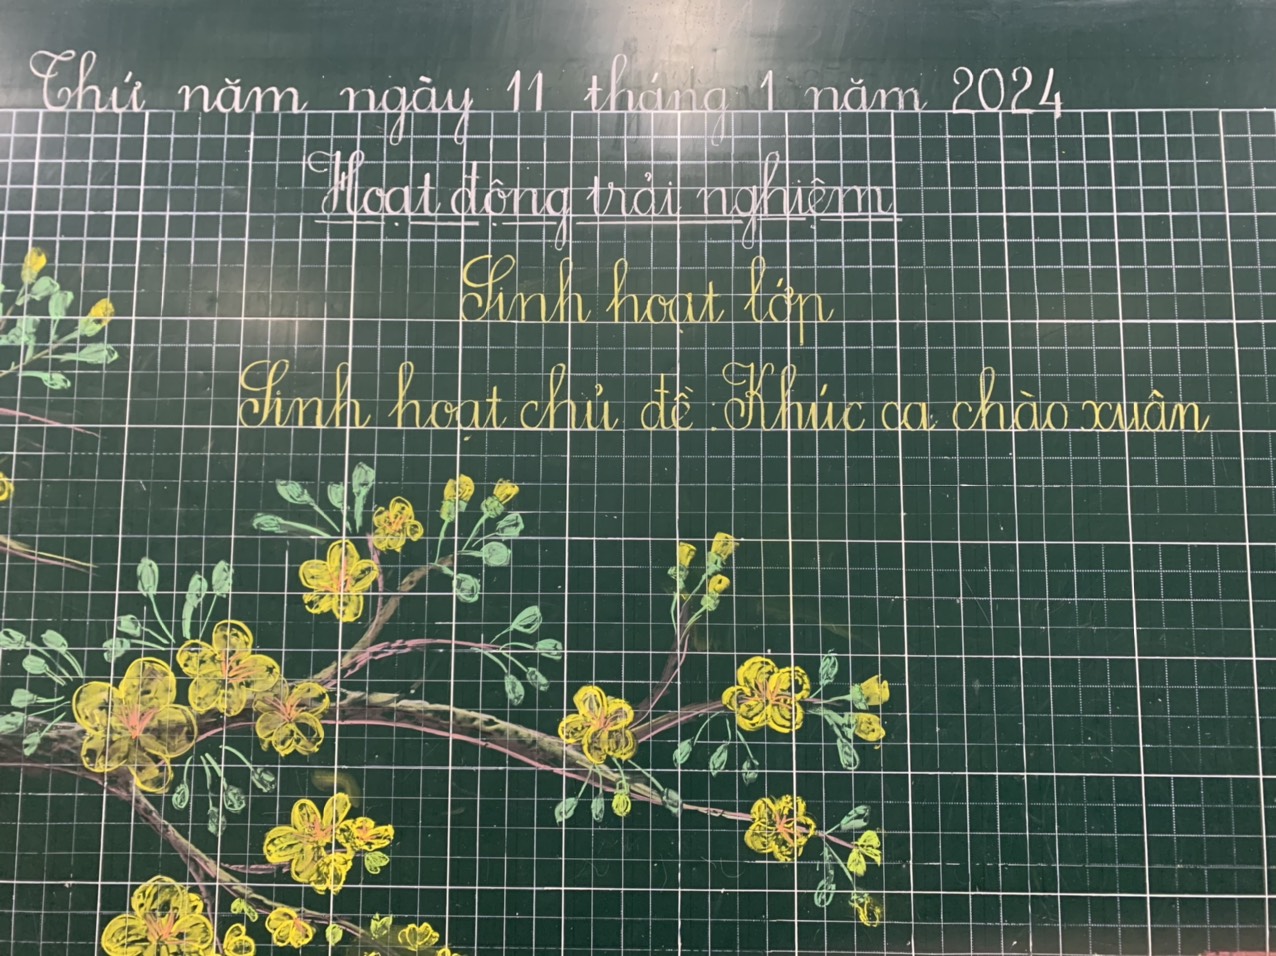 Thứ năm ngày 11 tháng 1 năm 2024
Hoạt động trải nghiệm
Sinh hoạt lớp
Sinh hoạt chủ đề: Khúc ca chào xuân